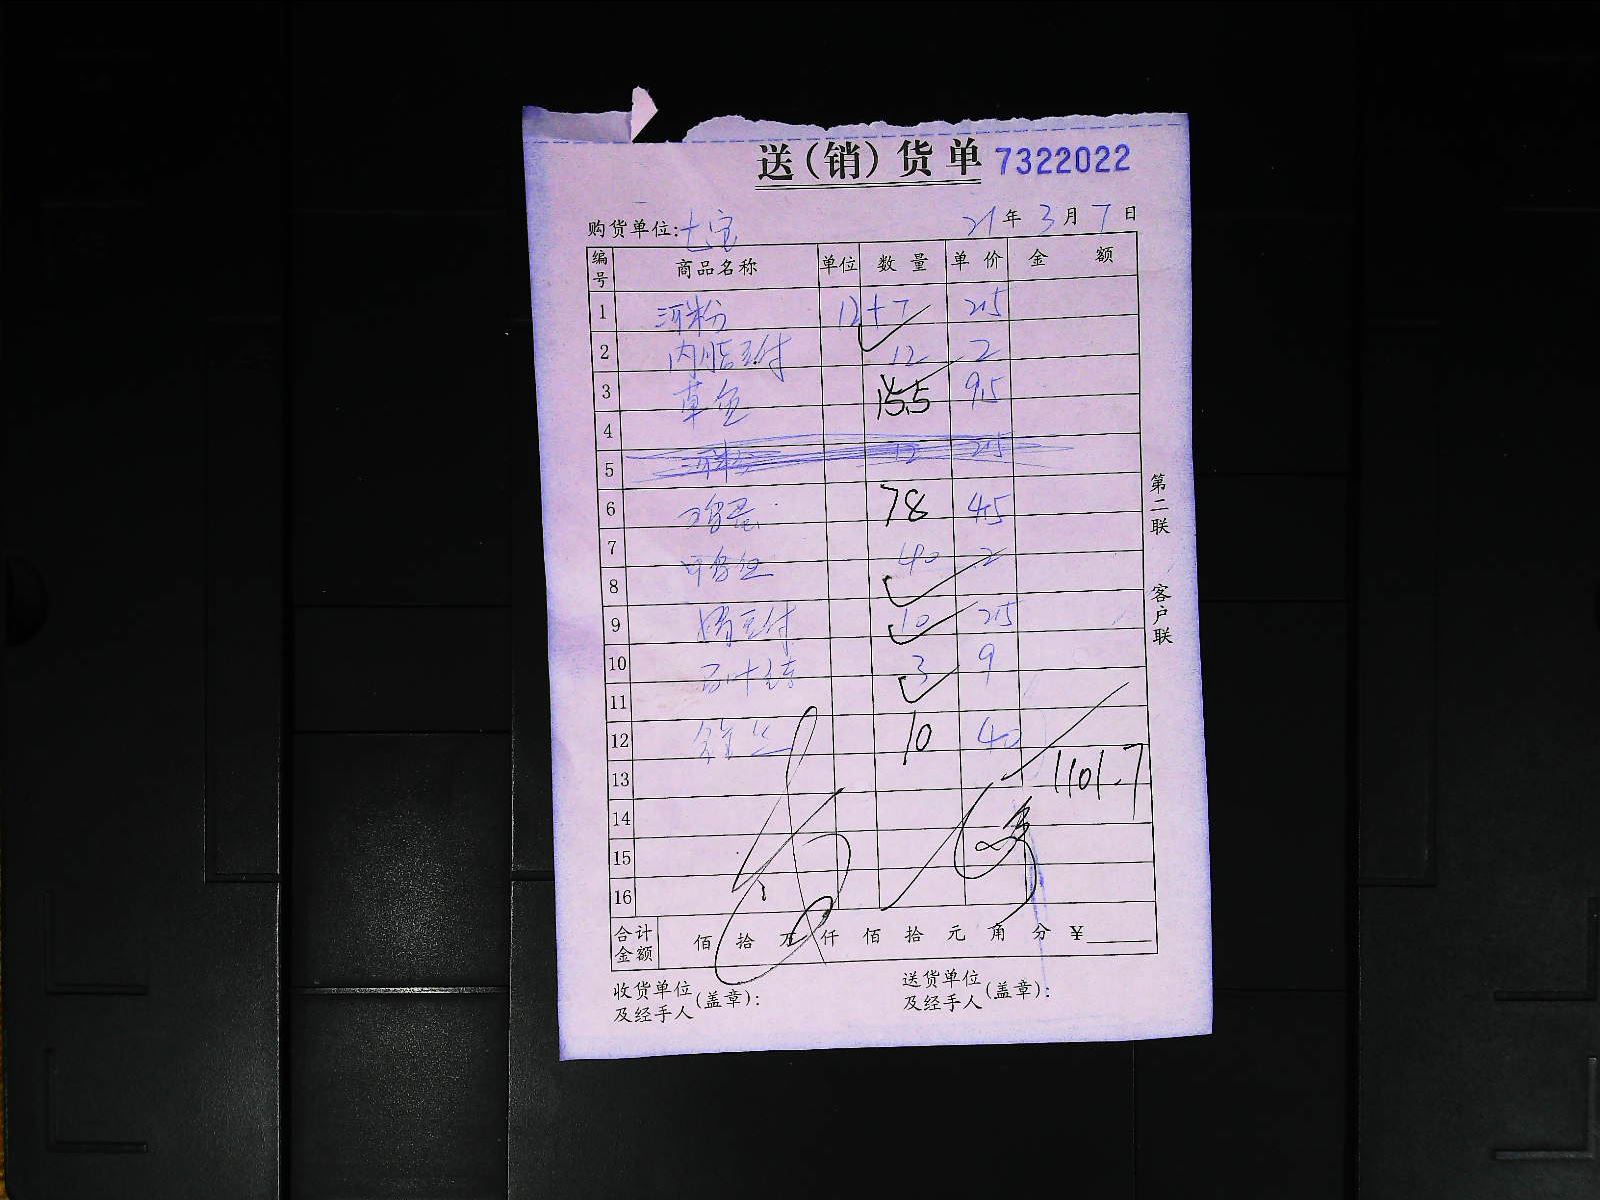 送(销)货单 7322022
购货单位:七宝 21年3月7日
编号 商品名称 单位 数量 单价 金额
1 河粉 12+7 2.5
2 内脂豆付 12 2
3 草鱼 15.5 9.5
4
5 河粉 12 2.5
6 鸡蛋 78 4.5
7 40 2
8
9 豆付 10 2.5
10 百叶结 3 9
11
12 10 40
13 1101.7
14
15
16
合计金额 佰 拾 万 仟 佰 拾 元 角 分 ¥
收货单位及经手人(盖章): 送货单位及经手人(盖章):
第二联 客户联